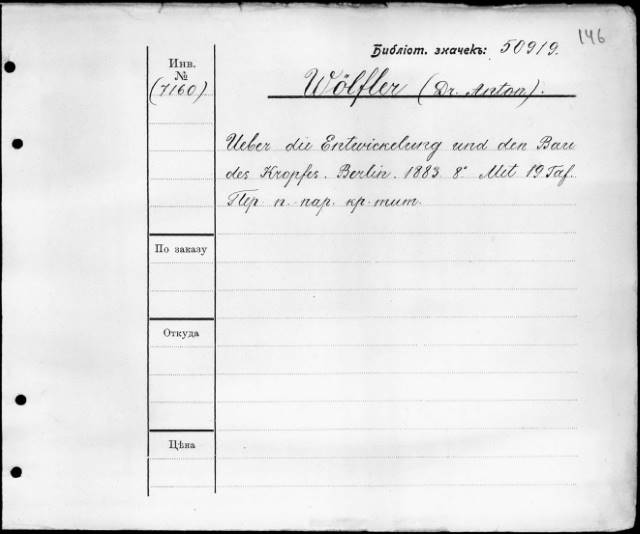 146
Библіот. значекъ: 50919.
Инв.
№
(7160)
Wölfler (Dr. Anton).
Ueber die Entwickelung und den Bau
des Kropfes. Berlin. 1883. 8° Mit 19 Taf.
Пер. п. пар. кр. тит.
По заказу
Откуда
Цѣна